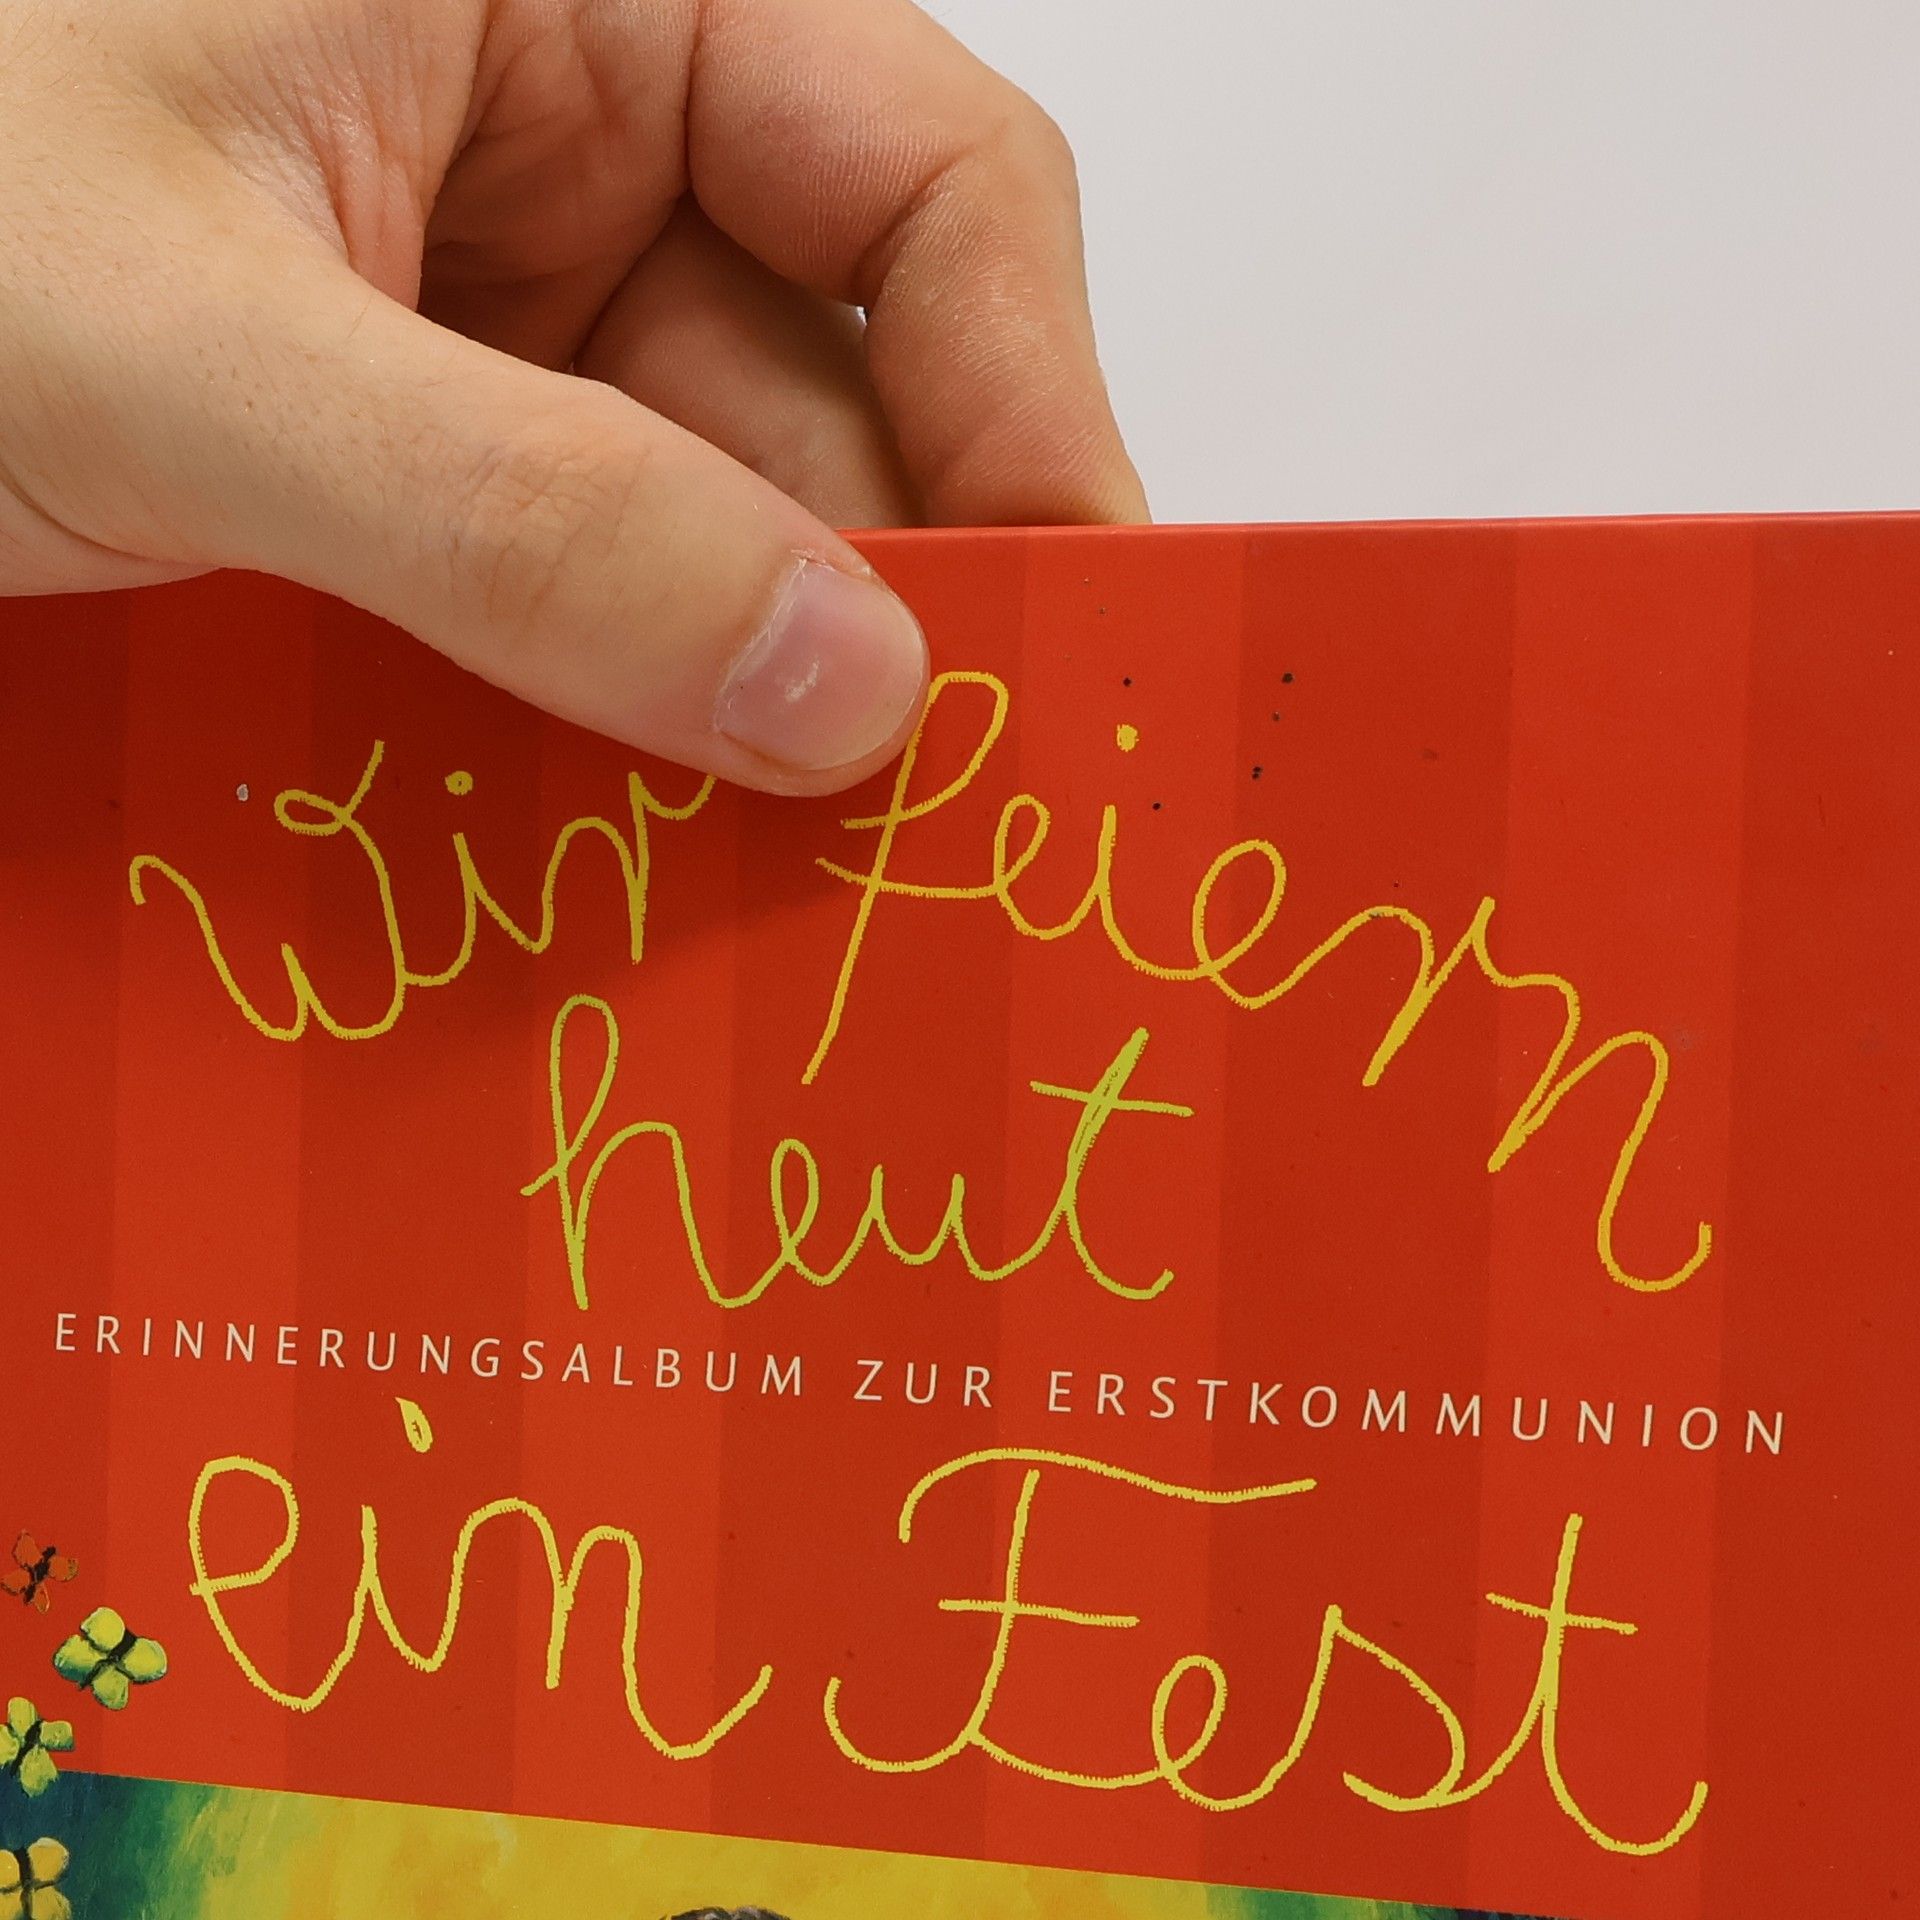 Wir feiern
heut
ERINNERUNGSALBUM ZUR ERSTKOMMUNION
ein Fest